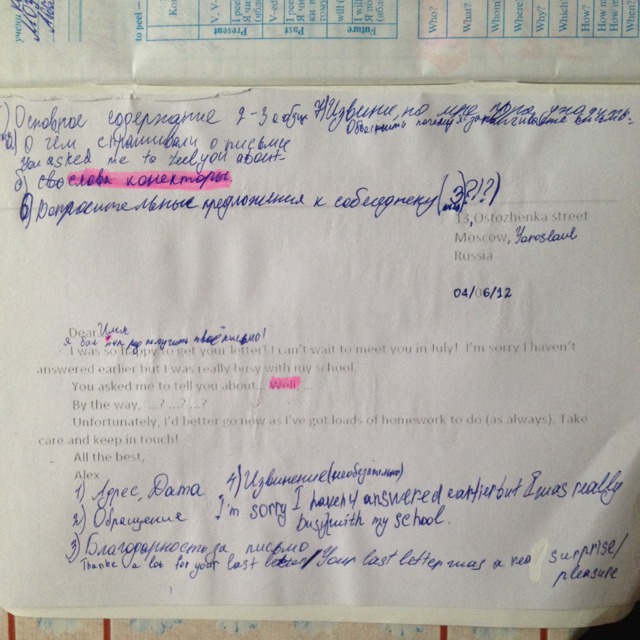 to peel –
Present
Past
Future
Who?
What?
When?
Where?
Why?
Which?
How?
How m
How
Основное содержание 2-3 абц 7) Извине, но мне пора
Объяснить почему заканчиваете письмо.
а) О чём спрашивали о письме
You asked me to tell you about
б) сво слова конекторы
6) Вопросительные предложения к собеседнику (3?!?)
13, Ostozhenka street
Moscow, Yaroslavl
Russia
04/06/12
Dear, Имя
Я был рад получить твоё письмо!
I was so happy to get your letter! I can't wait to meet you in July! I'm sorry I haven't
answered earlier but I was really busy with my school.
You asked me to tell you about... Well, ...
By the way, ...? ...? ...?
Unfortunately, I'd better go now as I've got loads of homework to do (as always). Take
care and keep in touch!
All the best,
Alex
1) Адрес, Дата 4) Извинение (необязательно)
I'm sorry I haven't answered earlier but I was really
2) Обращение busy with my school.
3) Благодарность за письмо
Thanks a lot for your last letter / Your last letter was a real surprise/
pleasure